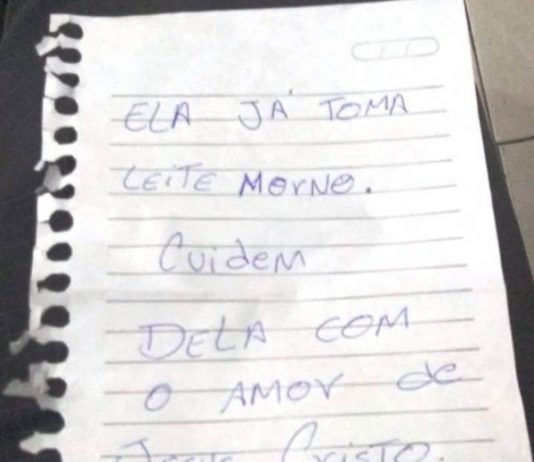 ELA JÁ TOMA
LEITE MORNO.
Cuidem
DELA COM
O AMOR de
Jesus Cristo.